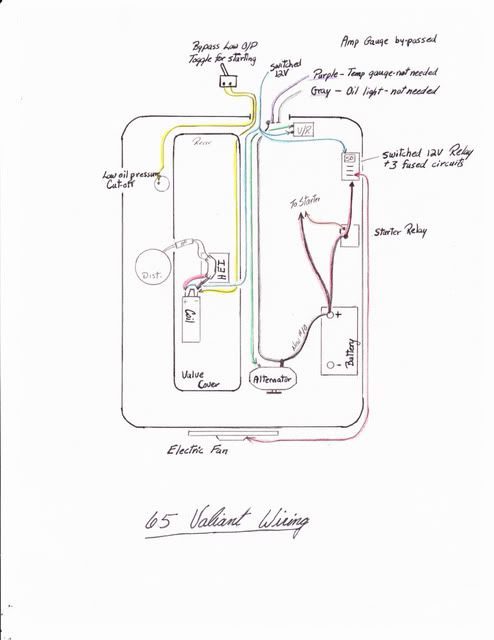 Amp Gauge by-passed
Bypass Low O/P
Toggle for starting
switched
12V
Purple - Temp gauge-not needed
Gray - Oil light - not needed
V/R
switched 12V Relay
+ 3 fused circuits
Low oil pressure
Cut-off
To Starter
Starter Relay
Dist.
HEI
Coil
+
Battery
-
Value
Cover
Alternator
Electric Fan
65 Valiant Wiring